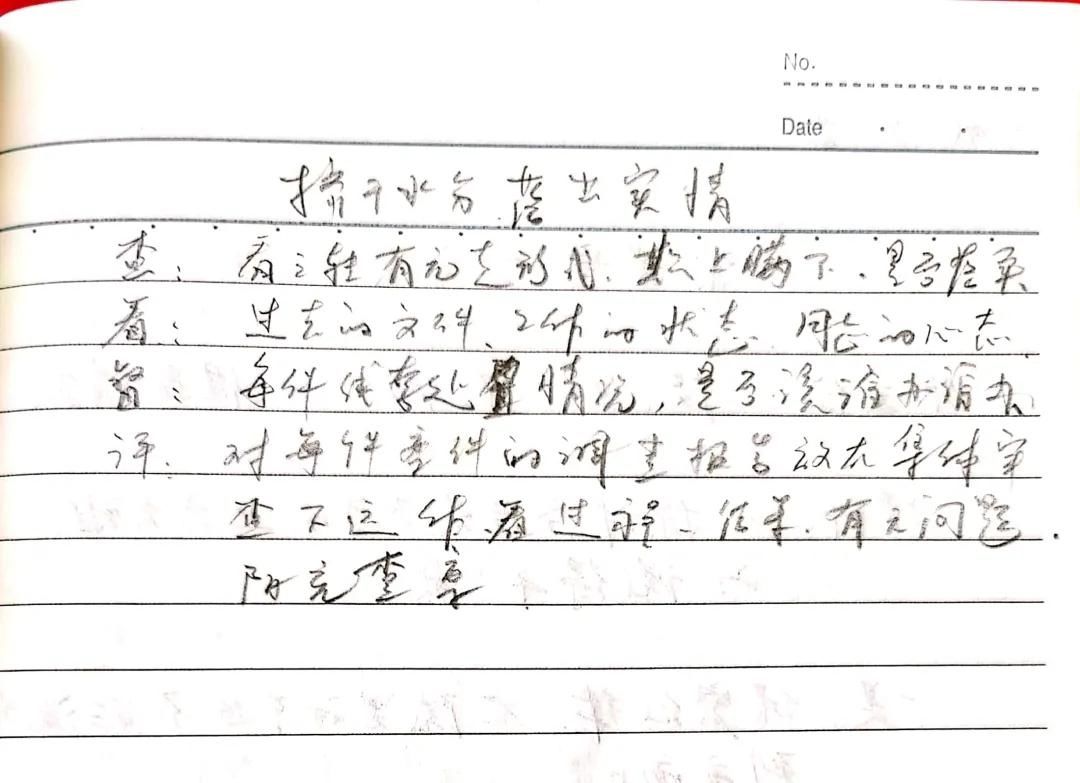 No.
Date
挤干水分 落出实情
查: 看之往有无走形式、欺上瞒下、是否落实
看: 过去的文件、工作的状态、同志的心态
督: 每件线索处置情况,是否该谁办谁办
评. 对每件查件的调查报告放在集体审
查下运作、看过程、结果、有无问题.
防充查